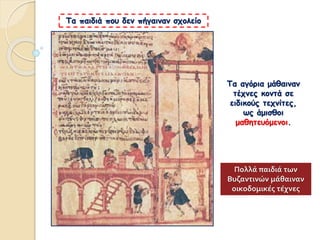 Τα παιδιά που δεν πήγαιναν σχολείο
Τα αγόρια μάθαιναν
τέχνες κοντά σε
ειδικούς τεχνίτες,
ως άμισθοι
μαθητευόμενοι.
Πολλά παιδιά των
Βυζαντινών μάθαιναν
οικοδομικές τέχνες